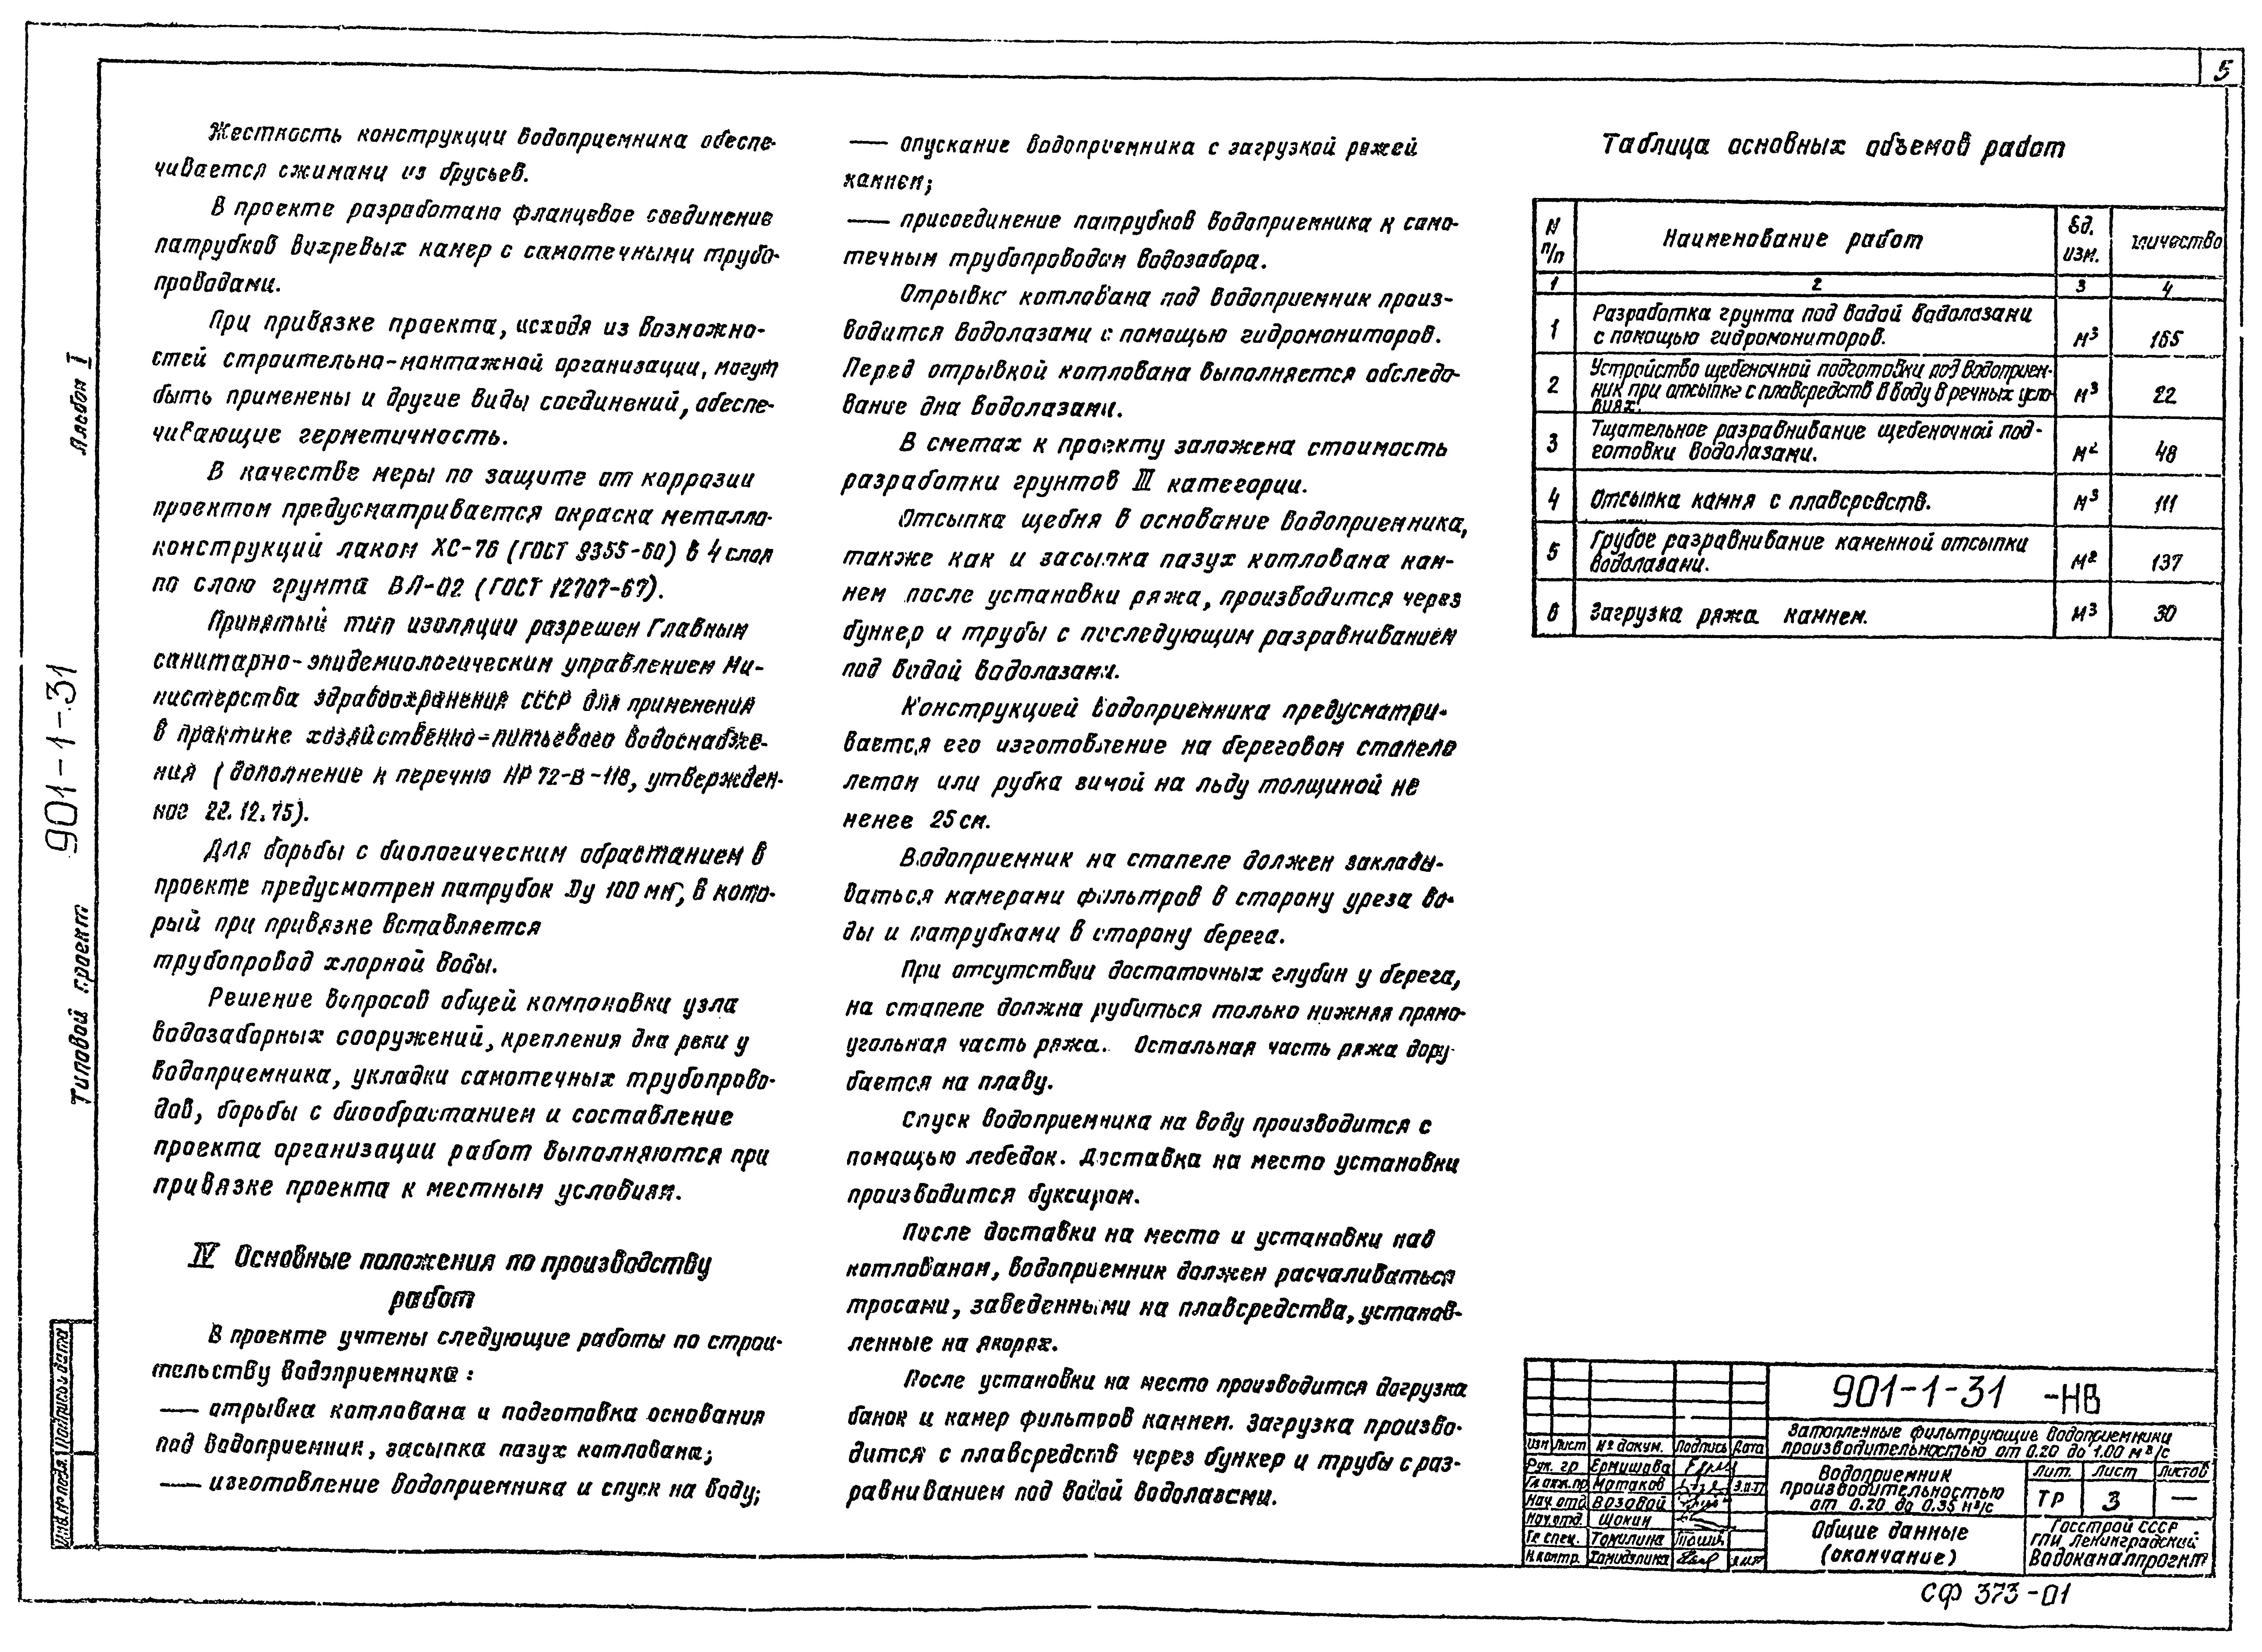 5
Жесткость конструкции водоприемника обеспе-
чивается сжимами из брусьев.
В проекте разработано фланцевое соединение
патрубков вихревых камер с самотечными трубо-
проводами.
При привязке проекта, исходя из возможно-
стей строительно-монтажной организации, могут
быть применены и другие виды соединений, обеспе-
чивающие герметичность.
В качестве меры по защите от коррозии
проектом предусматривается окраска металло-
конструкций лаком ХС-76 (ГОСТ 9355-60) в 4 слоя
по слою грунта ВЛ-02 (ГОСТ 12707-67).
Принятый тип изоляции разрешен Главным
санитарно-эпидемиологическим управлением Ми-
нистерства здравоохранения СССР для применения
в практике хозяйственно-питьевого водоснабже-
ния (дополнение к перечню НР 72-В-118, утвержден-
ное 22.12.75).
Для борьбы с биологическим обрастанием в
проекте предусмотрен патрубок Ду 100 мм, в кото-
рый при привязке вставляется
трубопровод хлорной воды.
Решение вопросов общей компоновки узла
водозаборных сооружений, крепления дна реки у
водоприемника, укладки самотечных трубопрово-
дов, борьбы с биообрастанием и составление
проекта организации работ выполняются при
привязке проекта к местным условиям.
IV Основные положения по производству
работ
В проекте учтены следующие работы по строи-
тельству водоприемника:
— отрывка котлована и подготовка основания
под водоприемник, засыпка пазух котлована;
— изготовление водоприемника и спуск на воду;
— опускание водоприемника с загрузкой ряжей
камнем;
— присоединение патрубков водоприемника к само-
течным трубопроводам водозабора.
Отрывка котлована под водоприемник произ-
водится водолазами с помощью гидромониторов.
Перед отрывкой котлована выполняется обследо-
вание дна водолазами.
В сметах к проекту заложена стоимость
разработки грунтов III категории.
Отсыпка щебня в основание водоприемника,
также как и засыпка пазух котлована кам-
нем после установки ряжа, производится через
бункер и трубы с последующим разравниванием
под водой водолазами.
Конструкцией водоприемника предусматри-
вается его изготовление на береговом стапеле
летом или рубка зимой на льду толщиной не
менее 25 см.
Водоприемник на стапеле должен заклады-
ваться камерами фильтров в сторону уреза во-
ды и патрубками в сторону берега.
При отсутствии достаточных глубин у берега,
на стапеле должна рубиться только нижняя прямо-
угольная часть ряжа. Остальная часть ряжа дору-
бается на плаву.
Спуск водоприемника на воду производится с
помощью лебедок. Доставка на место установки
производится буксиром.
После доставки на место и установки над
котлованом, водоприемник должен расчаливаться
тросами, заведенными на плавсредства, установ-
ленные на якорях.
После установки на место производится догрузка
банок и камер фильтров камнем. Загрузка произво-
дится с плавсредств через бункер и трубы с раз-
равниванием под водой водолазами.
Таблица основных объемов работ
N п/п Наименование работ Ед. изм. личество
1 2 3 4
1 Разработка грунта под водой водолазами
с помощью гидромониторов. м³ 165
2 Устройство щебеночной подготовки под водоприем-
ник при отсыпке с плавсредств в воду в речных усло-
виях. м³ 22
3 Тщательное разравнивание щебеночной под-
готовки водолазами. м² 48
4 Отсыпка камня с плавсредств. м³ 111
5 Грубое разравнивание каменной отсыпки
водолазами. м² 137
6 Загрузка ряжа камнем. м³ 30
Альбом I
Типовой проект 901-1-31
Инв. № подл. Подпись и дата
901-1-31 -НВ
Затопленные фильтрующие водоприемники
производительностью от 0.20 до 1.00 м³/с
Изм Лист № докум. Подпись Дата
Рук. гр Ермишова
Гл. инж. пр Матаков
Нач. отд Возовой
Нач. отд. Шокин
Гл. спец. Томилина
Н. контр.
Водоприемник
производительностью
от 0.20 до 0.35 м³/с
Лит. Лист Листов
ТР 3 —
Общие данные
(окончание)
Госстрой СССР
ГПИ Ленинградский
Водоканалпроект
СФ 373-01